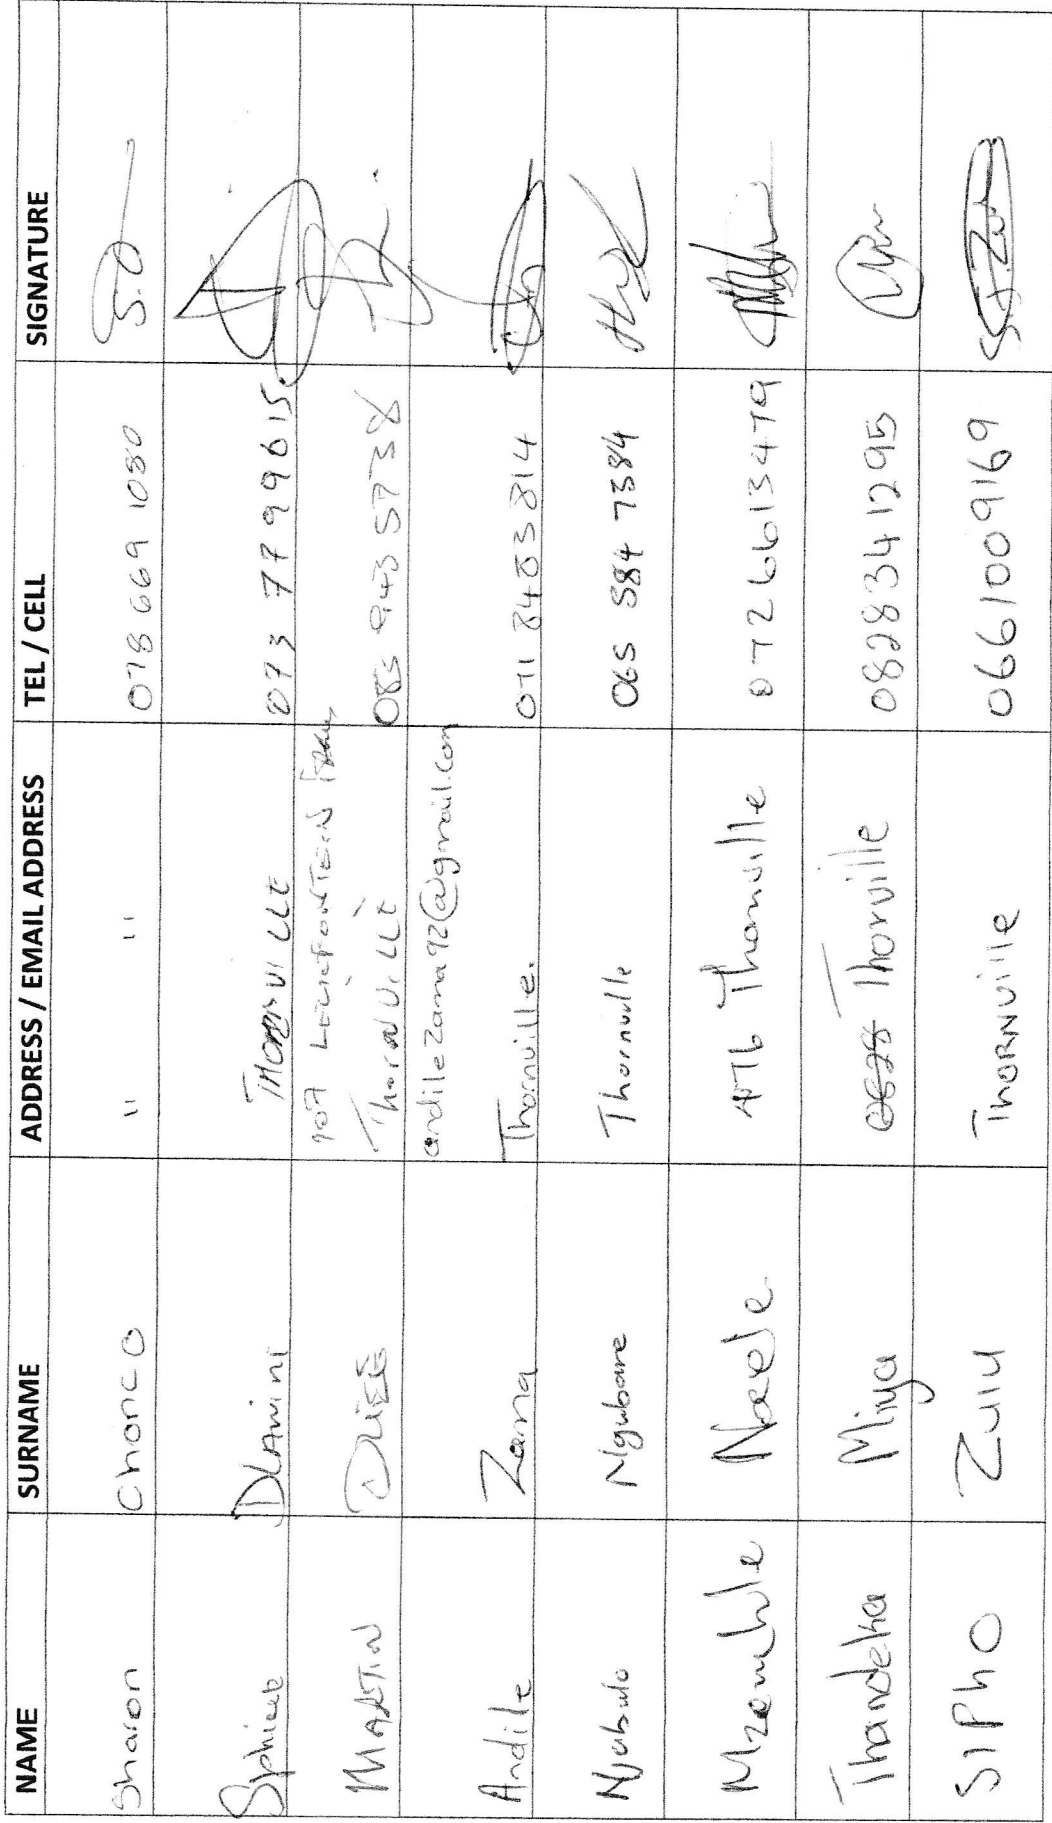 NAME SURNAME ADDRESS / EMAIL ADDRESS TEL / CELL SIGNATURE
Sharon Chonco " " 078 669 1080 S.O
DLAMINI THORNVILLE 073 7799615
907 LELIEFONTEIN
MARTIN THORNVILLE 943 5738
andilezama92@gmail.com
Andile Zama Thornville. 071 8483814
Njabulo Ngubane Thornville 065 584 7384
Thornville 0726613479
Thandeka Miya Thorville 0828341295
SIPhO Zulu THORNVille 0661009169 S.J.Zulu